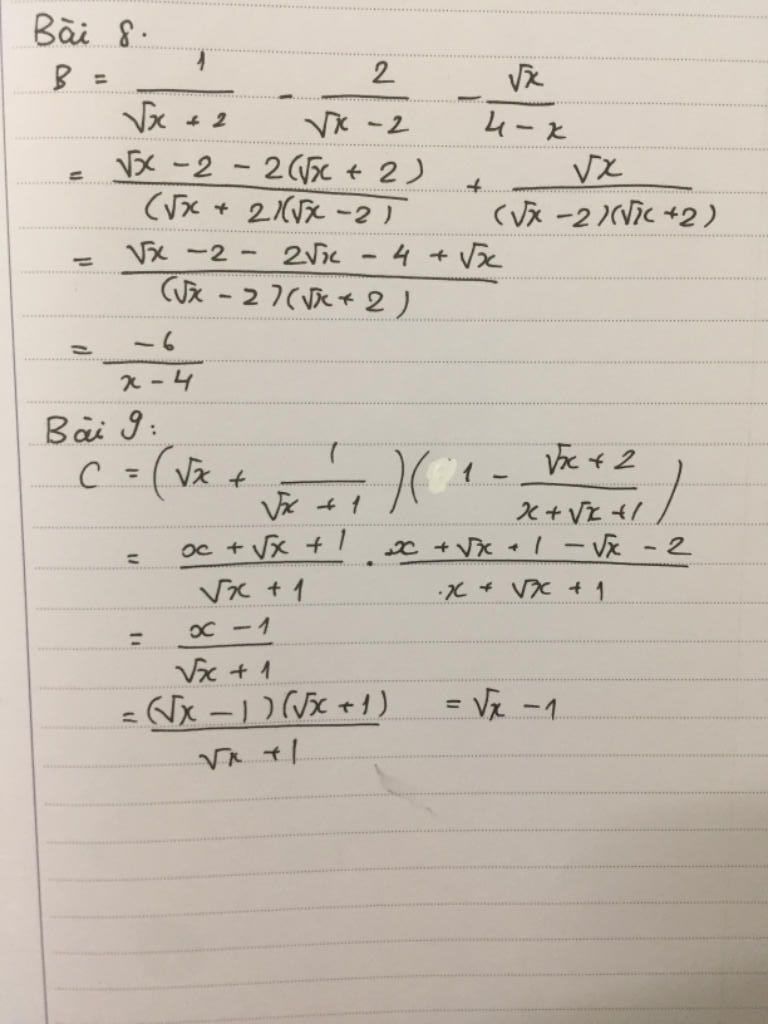 Bài 8.
B = \frac{1}{\sqrt{x} + 2} - \frac{2}{\sqrt{x} - 2} - \frac{\sqrt{x}}{4 - x}
= \frac{\sqrt{x} - 2 - 2(\sqrt{x} + 2)}{(\sqrt{x} + 2)(\sqrt{x} - 2)} + \frac{\sqrt{x}}{(\sqrt{x} - 2)(\sqrt{x} + 2)}
= \frac{\sqrt{x} - 2 - 2\sqrt{x} - 4 + \sqrt{x}}{(\sqrt{x} - 2)(\sqrt{x} + 2)}
= \frac{-6}{x - 4}
Bài 9:
C = (\sqrt{x} + \frac{1}{\sqrt{x} + 1})(1 - \frac{\sqrt{x} + 2}{x + \sqrt{x} + 1})
= \frac{x + \sqrt{x} + 1}{\sqrt{x} + 1} . \frac{x + \sqrt{x} + 1 - \sqrt{x} - 2}{x + \sqrt{x} + 1}
= \frac{x - 1}{\sqrt{x} + 1}
= \frac{(\sqrt{x} - 1)(\sqrt{x} + 1)}{\sqrt{x} + 1} = \sqrt{x} - 1